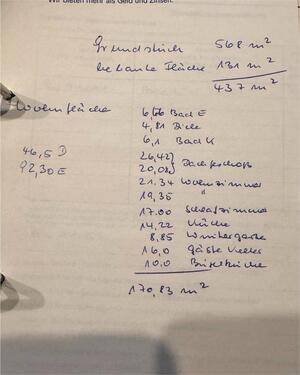 Wir bieten mehr als Geld und Zinsen.
Grundstück 568 m²
bebaute Fläche 131 m²
437 m²
Wohnfläche
6,66 Bad E
4,81 Diele
6,1 Bad K
46,5 D
92,30 E
26,42
20,02 Dachgeschoß
21.34 Wohnzimmer
19,35 "
17.00 Schlafzimmer
14,22 Küche
8,85 Wintergarten
16,0 Gäste Keller
10,0
170,83 m²